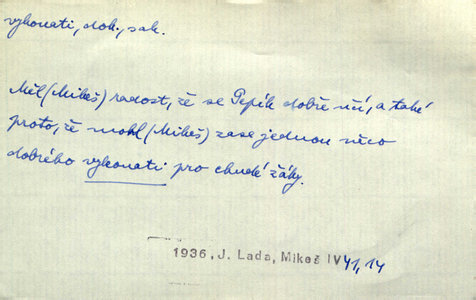 vykonati, dok., sak.
Měl (Mikeš) radost, že se Pepík dobře učí, a také
proto, že mohl (Mikeš) zase jednou něco
dobrého vykonati pro chudé žáky.
1936, J. Lada, Mikeš IV 41, 14